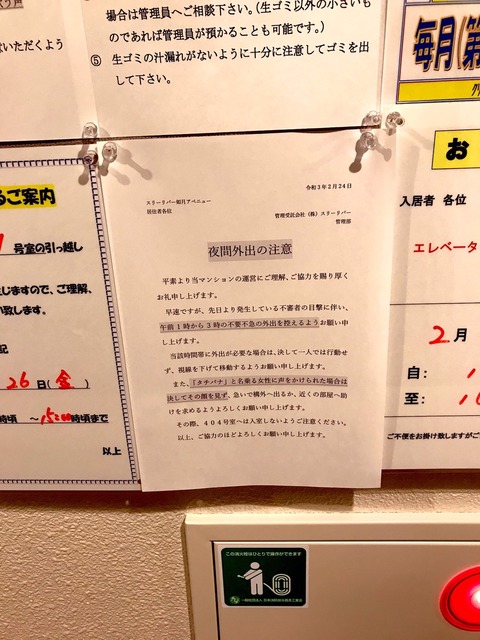 場合は管理員へご相談下さい。(生ゴミ以外の小さいも
のであれば管理員が預かることも可能です。)
⑤ 生ゴミの汁漏れがないように十分に注意してゴミを出
して下さい。
いただくよう
毎月(第
るご案内
号室の引っ越し
じますので、ご理解、
い致します。
記
26日(金)
時頃 ~15:00時頃まで
以上
令和3年2月24日
スリーリバー如月アベニュー
居住者各位
管理受託会社(株)スリーリバー
管理部
夜間外出の注意
平素より当マンションの運営にご理解、ご協力を賜り厚く
お礼申し上げます。
早速ですが、先日より発生している不審者の目撃に伴い、
午前1時から3時の不要不急の外出を控えるようお願い申
し上げます。
当該時間帯に外出が必要な場合は、決して一人では行動せ
ず、視線を下げて移動するようお願い申し上げます。
また、「タチバナ」と名乗る女性に声をかけられた場合は
決してその顔を見ず、急いで構外へ出るか、近くの部屋へ助
けを求めるようよろしくお願い申し上げます。
その際、404号室へは入室しないようご注意ください。
以上、ご協力のほどよろしくお願い申し上げます。
お
入居者 各位
エレベータ
2月
自:
至:
ご不便をお掛け致しますがご
この消火栓はひとりで操作ができます